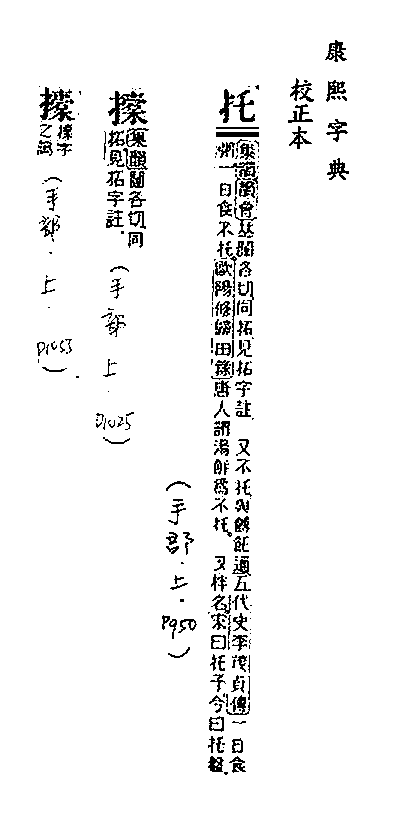 康熙字典
校正本
托
集韻韻會𠀤闥各切同拓見拓字註 又不托與餺飥通五代史李茂貞傳一日食
粥一日食不托歐陽修歸田錄唐人謂湯餅爲不托 又柈名宋曰托子今曰托盤
(手部.上.P950)
集韻闥各切同
拓見拓字註
(手部.上.P1025)
字
之譌
(手部.上.P1053)